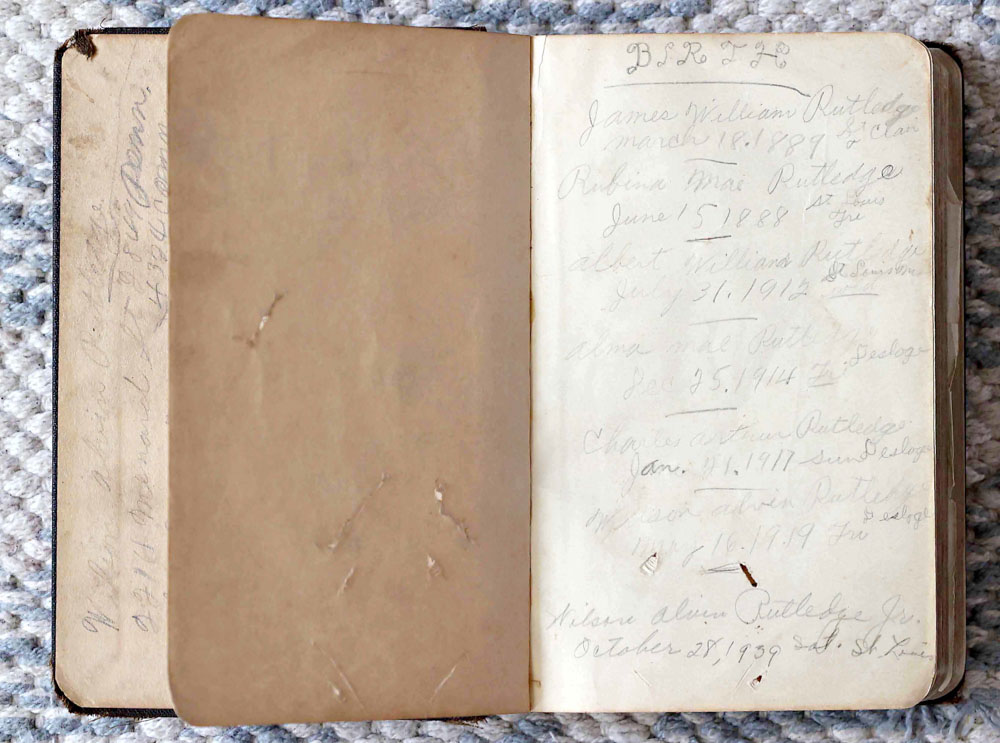 Rutledge
2714 Memorial St
4324 Penn.
BIRTH
James William Rutledge
march 18.1889 St Clair
Rubina Mae Rutledge
June 15 1888 St Louis
Fri
albert William Rutledge
July 31.1912 St Louis mo
wed
alma mae Rutl
Dec 25.1914 Fri Desloge
Charles arthur Rutledge
Jan. 1917 sun Desloge
alvin Rutledge
may 16.1919 Fri Desloge
Wilson alvin Rutledge Jr.
October 28, 1939 Sat. St Louis